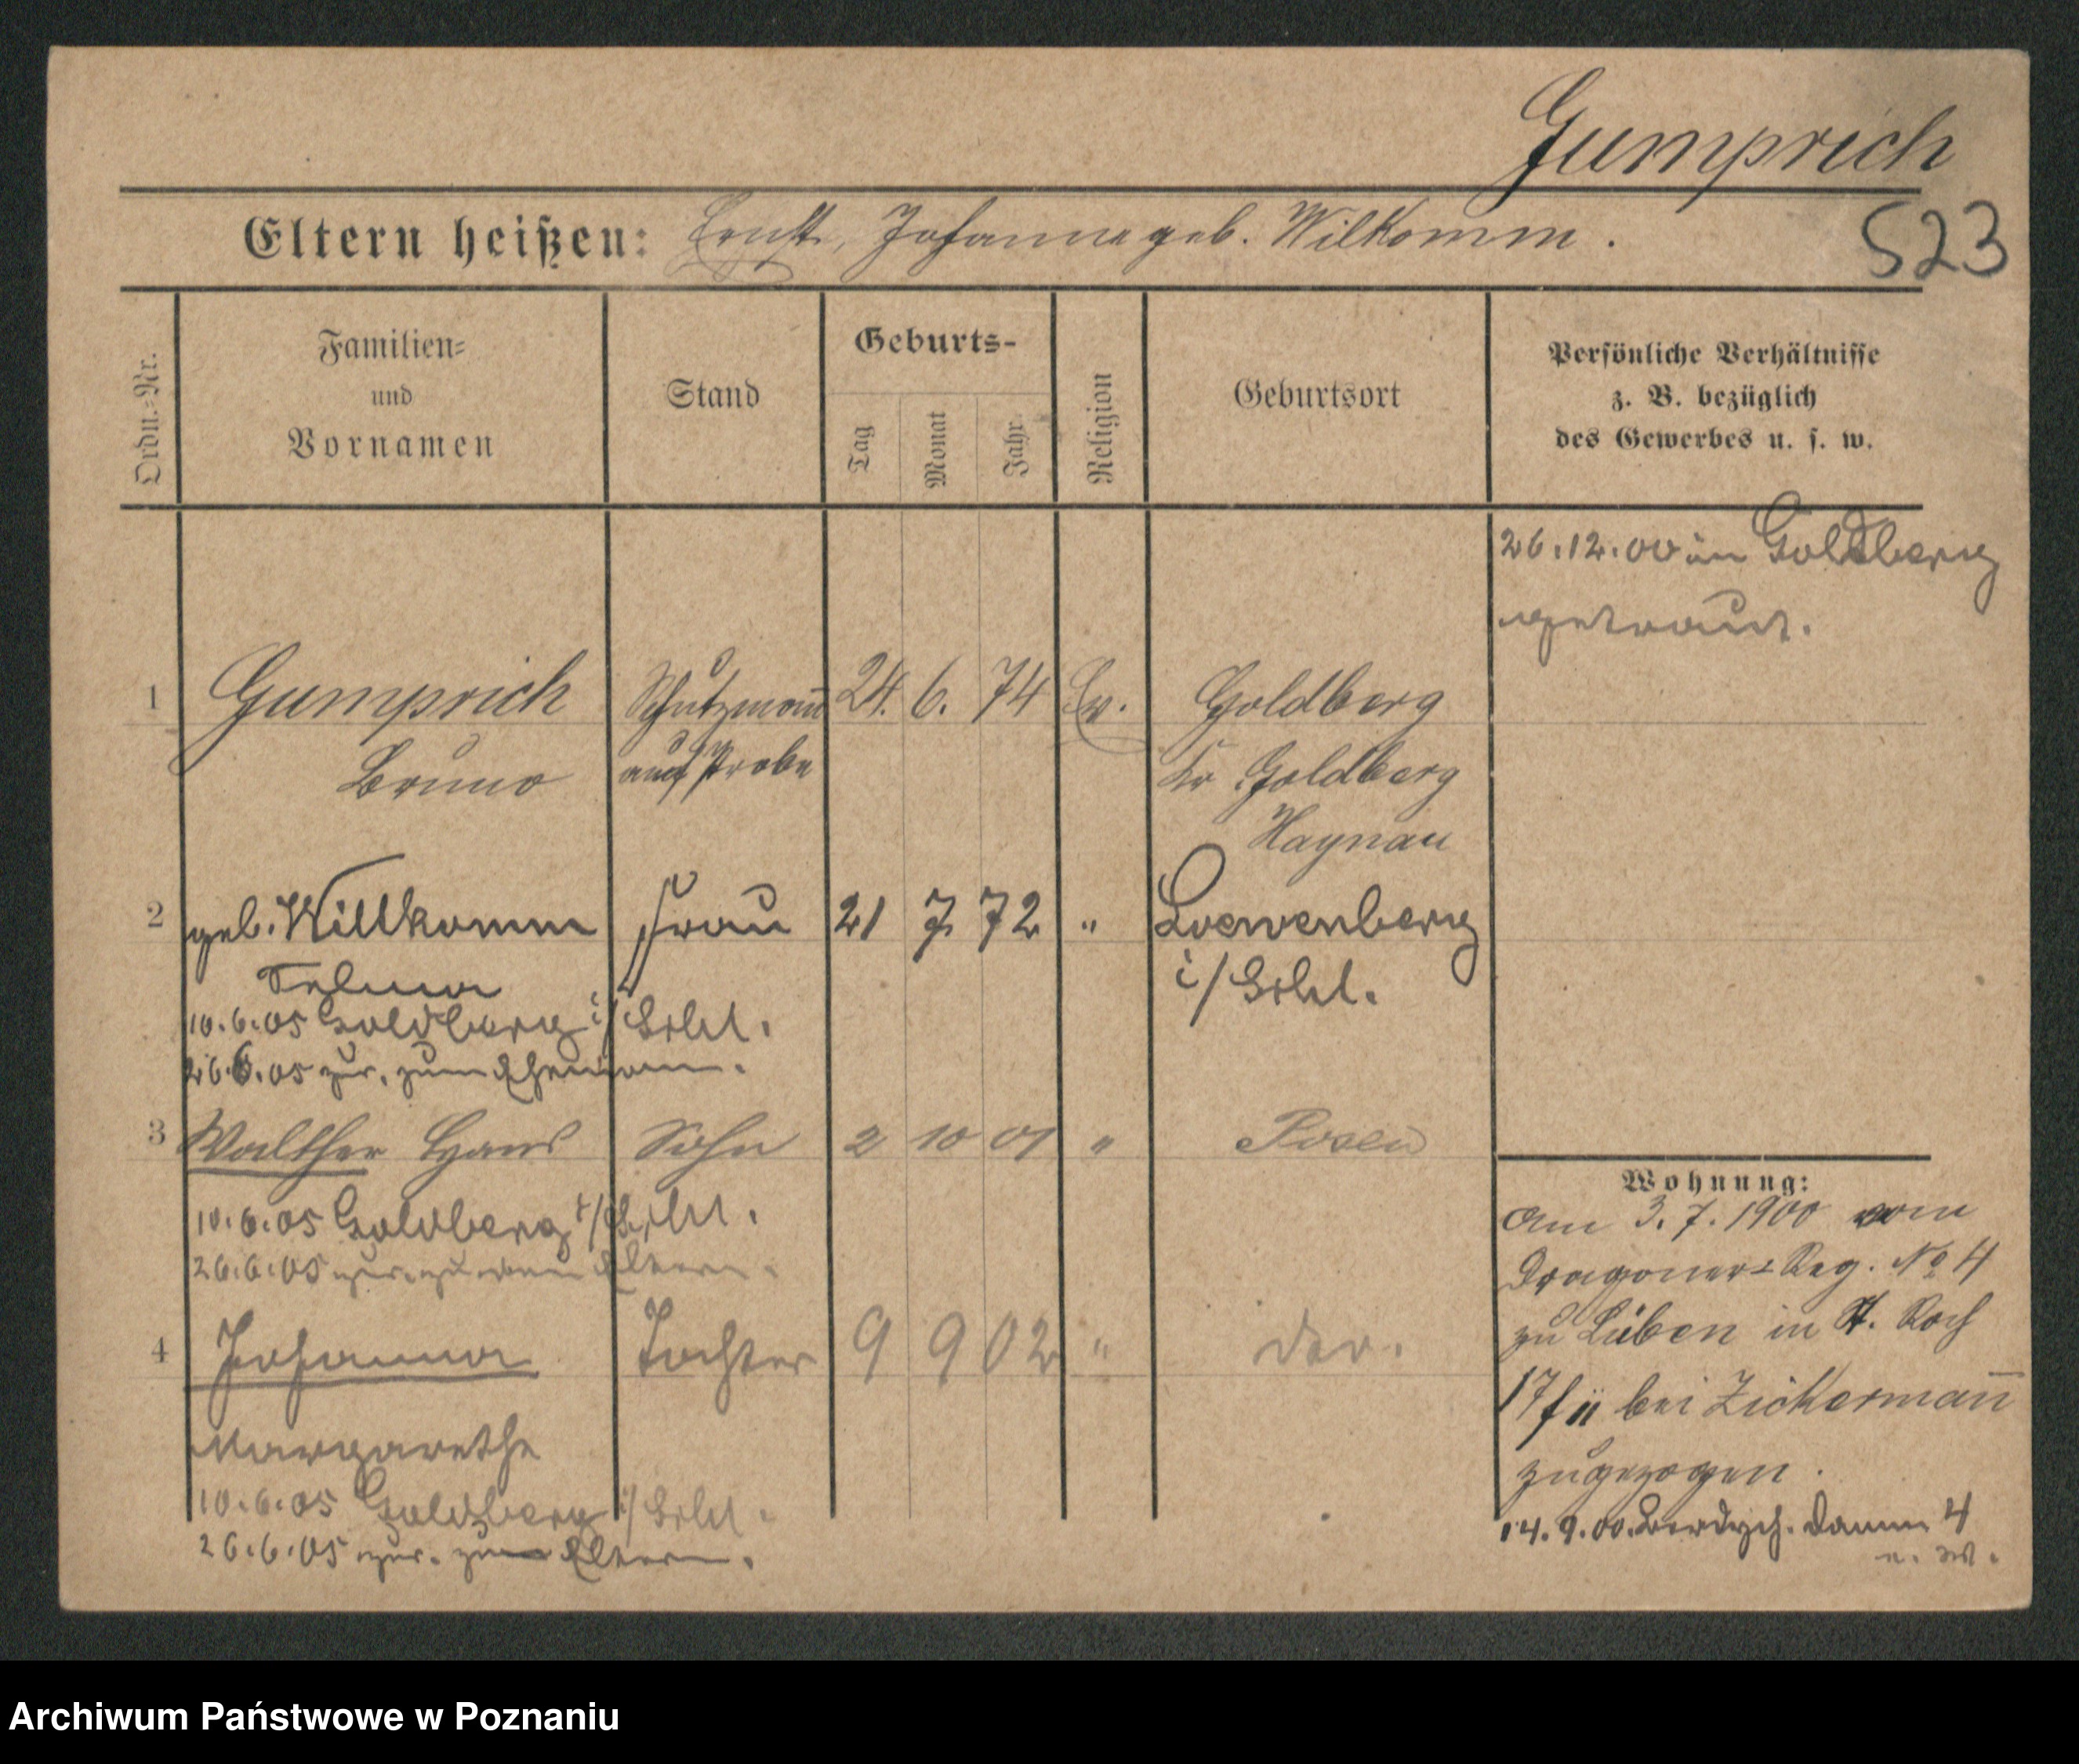 Gumprich
Eltern heißen: Ernst, Johanne geb. Wilkomm.
523
Ordn.-Nr.
Familien- und Vornamen
Stand
Geburts-
Tag
Monat
Jahr
Religion
Geburtsort
Persönliche Verhältnisse
z. B. bezüglich
des Gewerbes u. s. w.
26.12.00 in Goldberg
getraut.
1 Gumprich Schutzmann 24. 6. 74 Ev. Goldberg
Bruno auf Probe Kr Goldberg
Haynau
2 geb. Willkomm Frau 21 7 72 " Loewenberg
Selma i/Schl.
10.6.05 Goldberg i/Schl.
26.6.05 zur. zum Ehemann.
3 Walther Hans Sohn 2 10 01 " Posen
10.6.05 Goldberg i/Schl.
26.6.05 zur. zu den Eltern.
4 Johanna Tochter 9 9 02 "
Margarethe
10.6.05 Goldberg i/Schl.
26.6.05 zur. Eltern.
Wohnung:
Am 3.7.1900 vom
Dragoner-Reg. No 4
zu Lüben in St. Roch
17 f II bei Zickermann
zugezogen.
14.9.00. Berdych. Damm 4